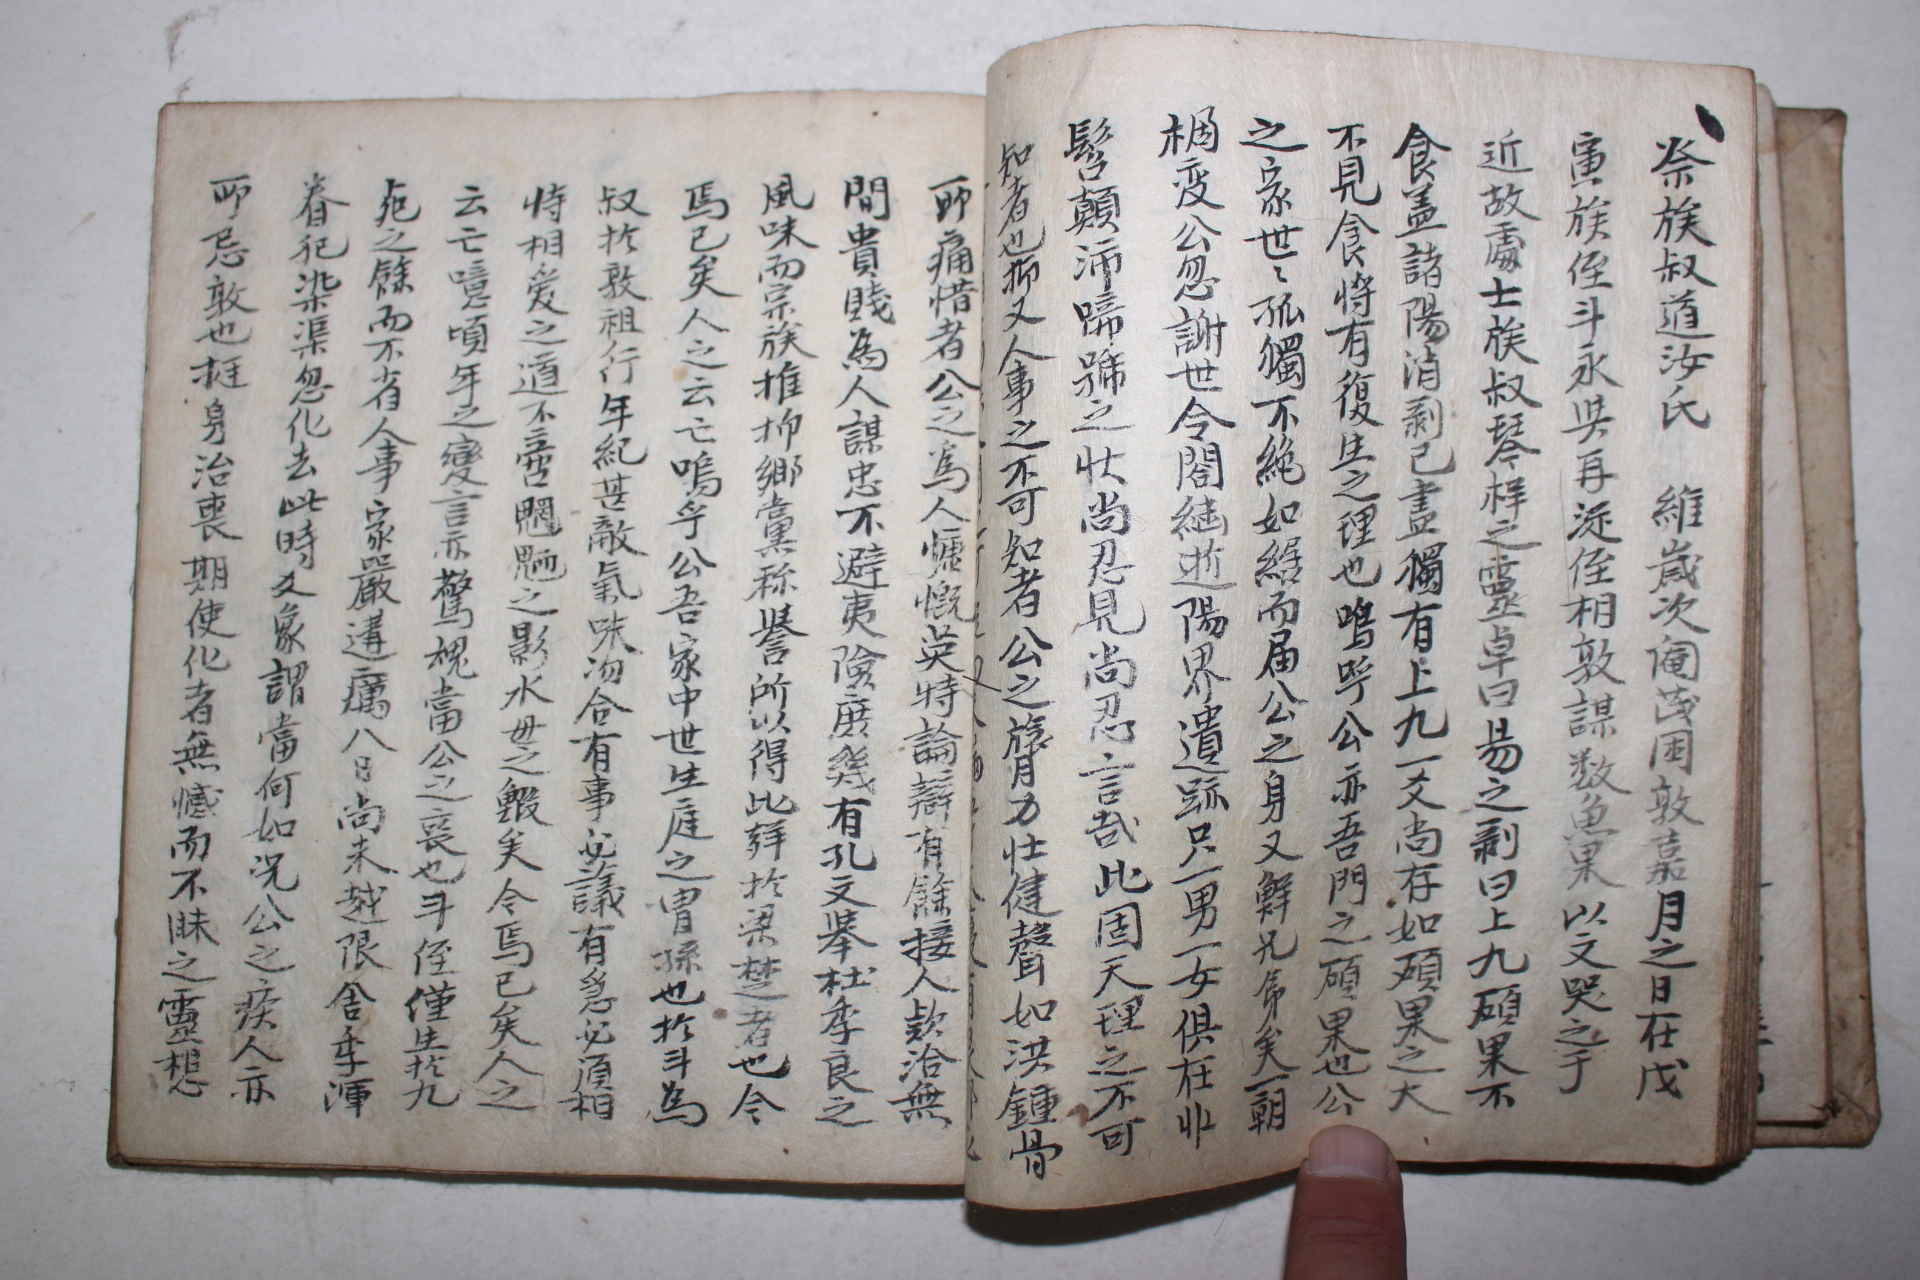 祭族叔道汝氏 維歲次閹茂困敦嘉月之日在戊
寅族侄斗永與再從侄相敦謀数魚果以文哭之于
近故處士族叔琴样之靈卓曰昜之剥曰上九碩果不
食盖諸陽消剥已盡獨有上九一爻尚存如碩果之大
不見食将有復生之理也嗚呼公亦吾門之碩果也公
之家世〻孤獨不絶如綹而届公之身又鮮兄弟矣一朝
禍变公忽謝世令閤繼逝陽界遺跡只一男一女俱在丱
髫顛沛啼號之状尚忍見尚忍言哉此固天理之不可
知者也抑又人事之不可知者公之膂力壮健聲如洪鍾骨
所痛惜者公之爲人慷慨英特論辯有餘接人款洽無
間貴賤為人謀忠不避夷險庶幾有孔文舉杜季良之
風味而宗族推抑鄉黨称誉所以得此聲於梁楚者也今
焉已矣人之云亡嗚乎公吾家中世生庭之胄孫也於斗為
叔於敦祖行年紀甚敵氣味沕合有事必議有急必須相
恃相爱之道不啻魍魎之影水母之鰕矣今焉已矣人之
云亡噫頃年之變言亦驚愧當公之喪也斗侄僅生於九
死之餘而不省人事家嚴遘癘八日尚未越限舍季渾
眷犯染渠忽化去此時爻象謂當何如况公之疾人亦
所忌敦也挺身治喪期使化者無憾而不昧之靈想